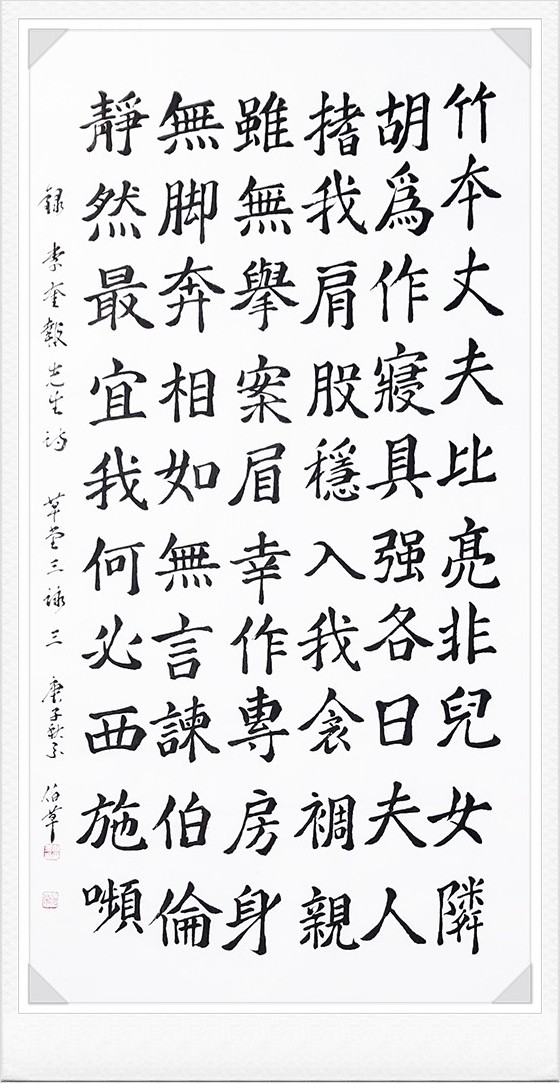 竹本丈夫比亮非兒女隣
胡爲作寢具强各日夫人
搘我肩股穩入我衾裯親
雖無擧案眉幸作專房身
無脚奔相如無言諫伯倫
靜然最宜我何必西施嚬
錄 李奎報先生詩 草堂三詠 三 庚子秋 草